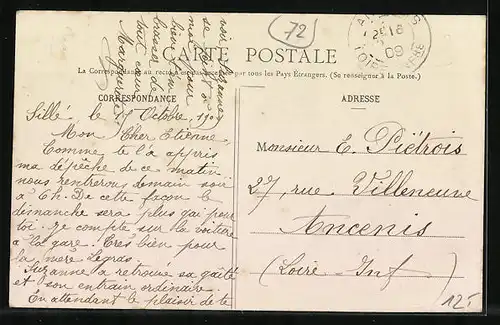 72
CARTE POSTALE
La Correspondance au recto par tous les Pays Étrangers. (Se renseigner à la Poste.)
CORRESPONDANCE
Sillé, le 7 Octobre, 190
Mon Cher Etienne,
Comme te l'a appris
ma dépêche de ce matin
nous rentrerons demain soir
à 6h. De cette façon le
dimanche sera plus gai pour
toi. je compte sur la voiture
à la gare. Très bien pour
la mère Legras.
Suzanne a retrouvé sa gaîté
et son entrain ordinaire.
En attendant le plaisir de te
voir Suzanne
se joint à
moi pour
bien t'em
brasser de
tout cœur
Marguerite
ADRESSE
Monsieur E. Piétrois
27, rue Villeneuve
Ancenis
(Loire-Inf)
18
09
LOIRE
125